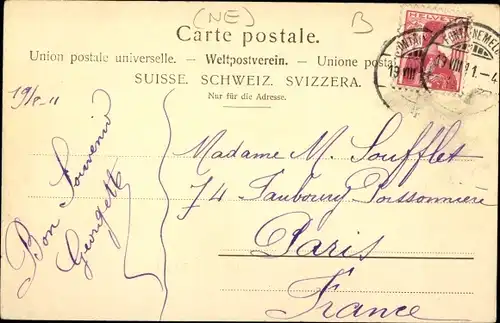 (NE) B
Carte postale.
Union postale universelle. — Weltpostverein. — Unione posta
SUISSE. SCHWEIZ. SVIZZERA.
Nur für die Adresse.
HELVE
19 VIII
19 VIII 11. – 4
19/8 - 11
Bon Souvenir
Georgette
Madame M. Soufflet
74 Faubourg Poissonnière
Paris
France